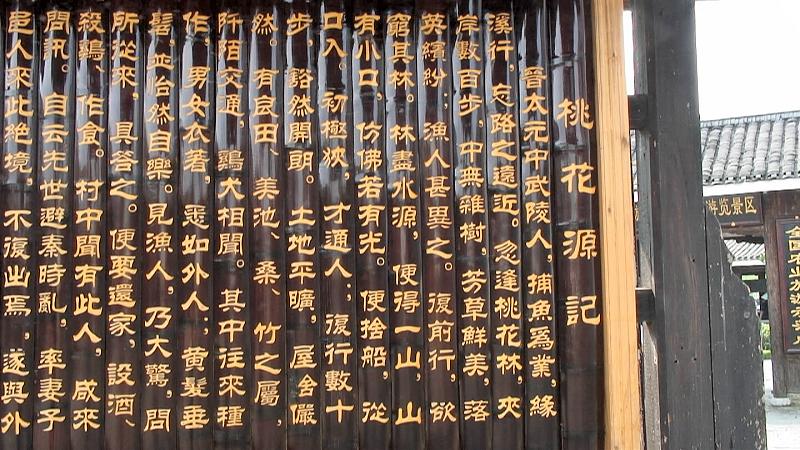 桃花源記
晉太元中武陵人，捕魚爲業，緣
溪行，忘路之遠近。忽逢桃花林，夾
岸數百步，中無雜樹，芳草鮮美，落
英繽紛；漁人甚異之。復前行，欲
窮其林。林盡水源，便得一山，山
有小口，仿佛若有光。便捨船，從
口入。初極狹，才通人；復行數十
步，豁然開朗。土地平曠，屋舍儼
然。有良田、美池、桑、竹之屬，
阡陌交通，鷄犬相聞。其中往來種
作，男女衣著，悉如外人；黄髮垂
髫，並怡然自樂。見漁人，乃大驚，問
所從來，具答之。便要還家，設酒、
殺鷄、作食。村中聞有此人，咸來
問訊。自云先世避秦時亂，率妻子
邑人來此絕境，不復出焉，遂與外
游览景区
全国农业旅游示